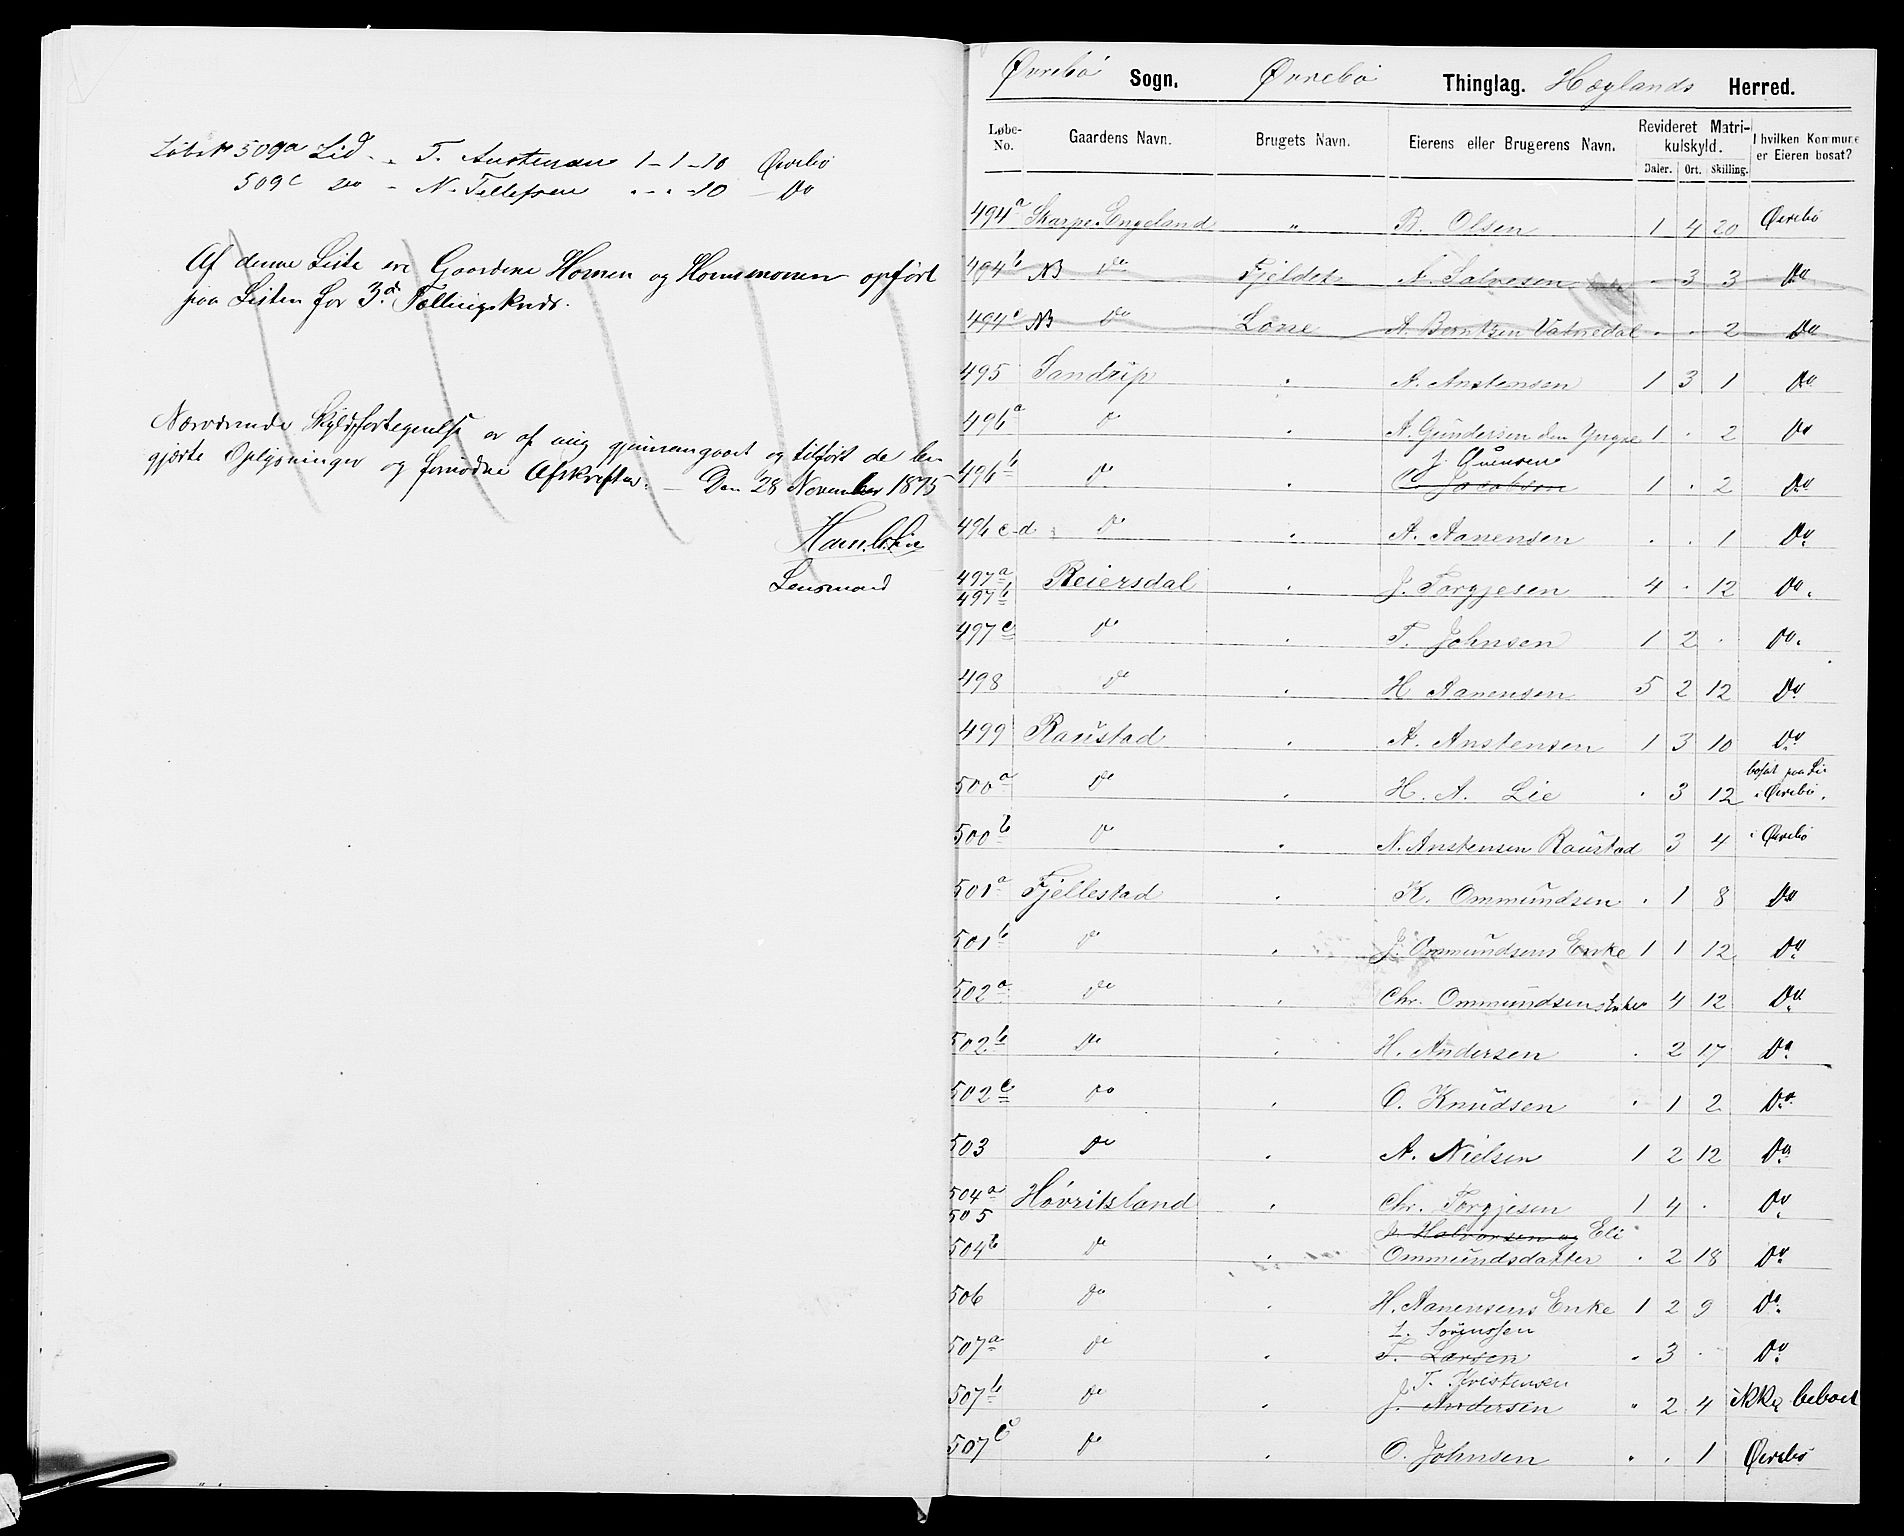 Løbe No 509a Lid „ T. Anstensen 1 – 1 – 10 Øvrebø
509c do – N. Tellefsen „ – „ – 10 – Do
Af denne Liste ere Gaardene Homen og Homsmonen opført
paa Listen for 3d Tællingskreds.
Nærværende Skyldfortegnelse er af mig gjennemgaaet og tilført de be-
gjærte Oplysninger og fornødne Afskrifter. – Den 28 November 1875
Lensmand
Øvrebø Sogn. Øvrebø Thinglag. Hægelands Herred.
Løbe-No. Gaardens Navn. Brugets Navn. Eierens eller Brugerens Navn. Revideret Matrikulskyld. Daler. Ort. Skilling. I hvilken Kommune er Eieren bosat?
494a Skarpengeland „ B. Olsen 1 4 20 Øvrebø
494b NB Do Fjeldet A. Salvesen . 3 3 Do
494c NB Do Lone A. Berntsen Vatnedal . . 2 Do
495 Sandrip . A. Anstensen 1 3 1 Do
496a Do . A. Gundersen den Yngre 1 . 2 Do
J. Gunensen
496b Do . C. Jacobsen 1 . 2 Do
496 c-d Do . A. Aanensen . . 1 Do
497a
497b Reiersdal . J. Torgjesen 4 . 12 Do.
497c Do . T. Johnsen 1 2 . Do.
498 Do . H Aanensen 5 2 12 Do
499 Raustad . A. Anstensen 1 3 10 Do
bosat paa Lie
500a Do . H. A. Lie . 3 12 i Øvrebø.
500b Do . N. Anstensen Raustad 3 4 i Øvrebø
501a Fjellestad . K. Ommundsen . 1 8 Do
501b Do . J. Ommundsens Enke 1 1 12 Do
502a Do . Chr. Ommundsens Enke 4 12 Do
502b Do . H. Andersen . 2 17 Do
502c Do . O. Knudsen . 1 2 Do
503 Do . A. Nielsen 1 2 12 Do
504a
505 Høvritsland . Chr. Torgjesen 1 4 . Do
Halvorsen og Eli
504b Do . Ommundsdatter . 2 18 Do
506 Do . H. Aanensens Enke 1 2 9 Do
L. Sørenssen
507a Do . T. Larsen . 3 . Do
J. T. Kristensen
507b Do . J. Andersen „ 2 4 ikke beboet
507c Do . O. Johnsen . . 1 Øvrebø